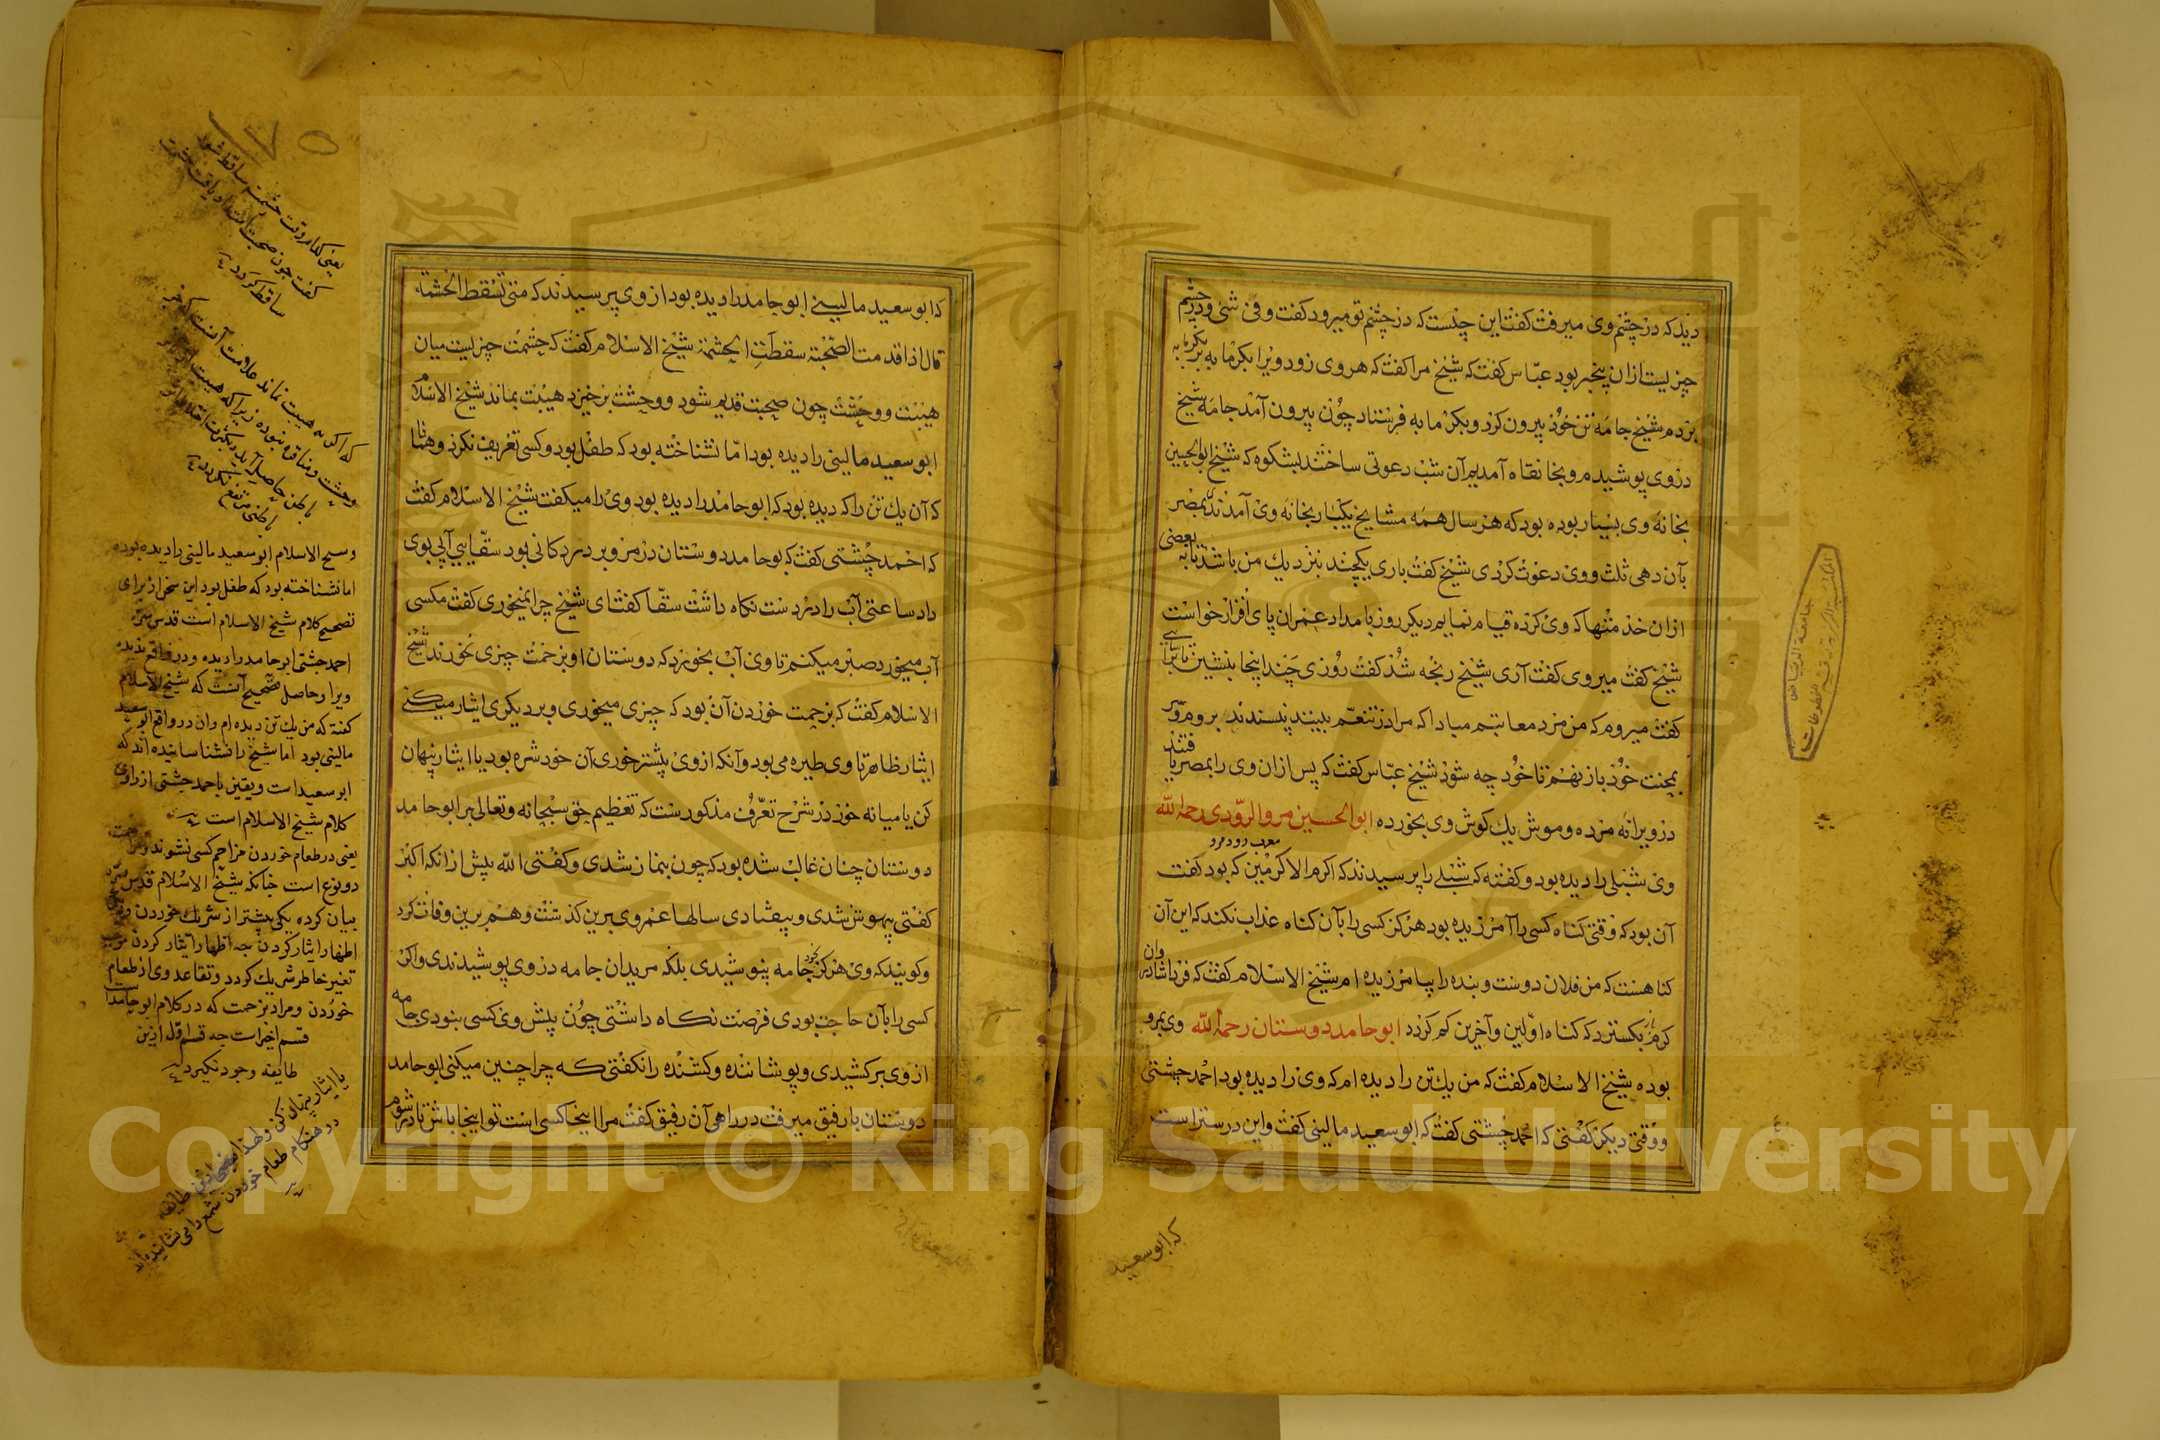 دید که در چشم وی میرفت کفت این چیست که در چشم تو میرود کفت وقی شی و در چشم
چیزیست ازان پنجبر بود عبّاس کفت که شیخ مرا کفت که هر وی زود ویرا بکرمابه بر بکرمابه
بردم شیخ جامه تن خود بیرون کرد و بکرمابه فرستاد چون بیرون آمد جامه شیخ
در وی پوشیدم و بخانقاه آمدیم آن شب دعوتی ساختند بشکوه که شیخ ابوالحسین
بخانه وی بسیار بوده بود که هر سال همه مشایخ یکبار بخانه وی آمدندی بمصر
بآن دهی ثلث و وی دعوت کردی شیخ کفت باری یکچند بنزدیک من باشد تا به بعضی
ازان خدمتها که وی کرده قیام نمایم دیکر روز بامداد عمران پای افزار خواست
شیخ کفت میروی کفت آری شیخ رنجه شد کفت روزی چند اینجا بنشین
کفت میروم که من مرد معاتبم مبادا که مرا در تنعّم ببینند نپسندند بروم و بر
محنت خود باز نهم تا خود چه شود شیخ عبّاس کفت که پس ازان وی را بمصر یافتند
در ویرانه مرده و موش یک کوش وی بخورده ابوالحسین مروالرّودی رحمه الله
معرب رود مرو
وی شبلی را دیده بود و کفته که شبلی را پرسیدند که اکرم الاکرمین که بود کفت
آن بود که وقتی کناه کسی را آمرزیده بود هرکز کسی را بآن کناه عذاب نکند که این آن
کناهست که من فلان دوست و بنده را بیامرزیده ام شیخ الاسلام کفت که فردا شادروان
کرم باز بکسترد که کناه اوّلین و آخرین کم کردد ابوحامد دوستان رحمه الله وی بمرو
بوده شیخ الاسلام کفت که من یک تن را دیده ام که وی را دیده بود احمد چشتی
و وقتی دیکر کفتی که احمد چشتی کفت که ابوسعید مالینی کفت و این درستر است
که ابوسعید
المكتبة المركزية قسم
جامعة الرياض
مخطوطات
١٧٥
که ابوسعید مالینی ابوحامد را دیده بود از وی پرسیدند که متی تسقط الحشمة
قال اذا قدمت الصّحبة سقطت الحشمة شیخ الاسلام کفت که حشمت چیزیست میان
هیبت و وحشت چون صحبت قدیم شود و وحشت برخیزد هیبت بماند شیخ الاسلام
ابوسعید مالینی را دیده بود امّا نشناخته بود که طفل بود و کسی تعریف نکرد و همانا
که آن یک تن را که دیده بود که ابوحامد را دیده بود وی را میکفت شیخ الاسلام کفت
که احمد چشتی کفت که بوحامد دوستان در مرو بر در دکانی بود سقّایی آبی بوی
داد ساعتی آب را در دست نکاه داشت سقّا کفت ای شیخ چرا نمیخوری کفت مکسی
آب میخورد صبر میکنم تا وی آب بخورد که دوستان او بزحمت چیزی نخورند شیخ
الاسلام کفت که بزحمت خوردن آن بود که چیزی میخوری و بر دیکری ایثار میکنی
ایثار ظاهر تا وی طیره می بود و آنکه از وی پیشتر خوری آن خود شره بود یا ایثار پنهان
کن یا میانه خور در شرح تعرّف مذکور است که تعظیم حق سبحانه و تعالی بر ابوحامد
دوستان چنان غالب شده بود که چون بنماز شدی و کفتی الله پیش ازانکه اکبر
کفتی بیهوش شدی و بیفتادی سالها عمر وی برین کذشت و هم برین وفات کرد
و کویند که وی هرکز خود جامه نپوشیدی بلکه مریدان جامه در وی پوشیدندی و اکر
کسی را بآن حاجت بودی فرصت نکاه داشتی چون پیش وی کسی نبودی جامه
از وی برکشیدی و پوشاننده و کشنده را نکفتی که چرا چنین میکنی ابوحامد
دوستان با رفیق میرفت در راهی آن رفیق کفت مرا اینجا کسی است تو اینجا باش تا در شوم
یعنی کدام وقت حشمت ساقط شود
کفت چون صحبت
ساقط کردد
هیبت نماند علامت آنست که
وسیخ الاسلام ابوسعید مالینی را دیده بوده
اما نشناخته بود که طفل بود این سخن از برای
تصحیح کلام شیخ الاسلام است قدس سره
احمد چشتی ابوحامد را دیده و در واقع ندیده
ویرا و حاصل تصحیح آنست که شیخ الاسلام
کفته که من یک تن دیده ام و ان در واقع ابوسعید
مالینی بود اما شیخ را نشناسانیده اند که
ابوسعید است و یقین باحمد چشتی از راوی
کلام شیخ الاسلام است
یعنی در طعام خوردن مزاحم کسی نشوند
دو نوع است چنانکه شیخ الاسلام قدس سره
بیان کرده یکی پیشتر از شریک خوردن
اظهار ایثار کردن چه اظهار ایثار کردن
تغیر خاطر شریک کردد و تقاعد وی از طعام
خوردن و مراد بزحمت که در کلام ابوحامد است
قسم اخیر است چه قسم اول ازین
طایفه وجود نکیرد
یا ایثار پنهان کن و لهذا بعضی ازین طایفه
در هنکام طعام خوردن شمع را می نشانیده اند
Copyright © King Saud University